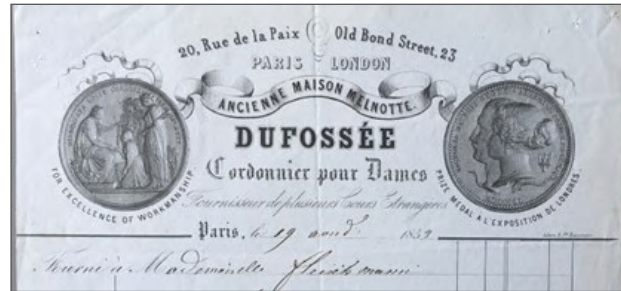 20, Rue de la Paix Old Bond Street, 23
PARIS LONDON
ANCIENNE MAISON MELNOTTE.
DUFOSSÉE
Cordonnier pour Dames
Fournisseur de plusieurs Cours Etrangères
FOR EXCELLENCE OF WORKMANSHIP.
PRIZE MEDAL A L'EXPOSITION DE LONDRES.
Paris, le 19 août 1859
Fourni à Mademoiselle